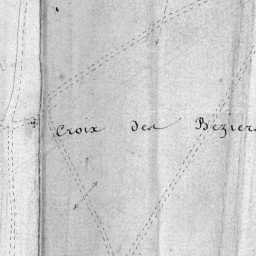 Croix des Béziers